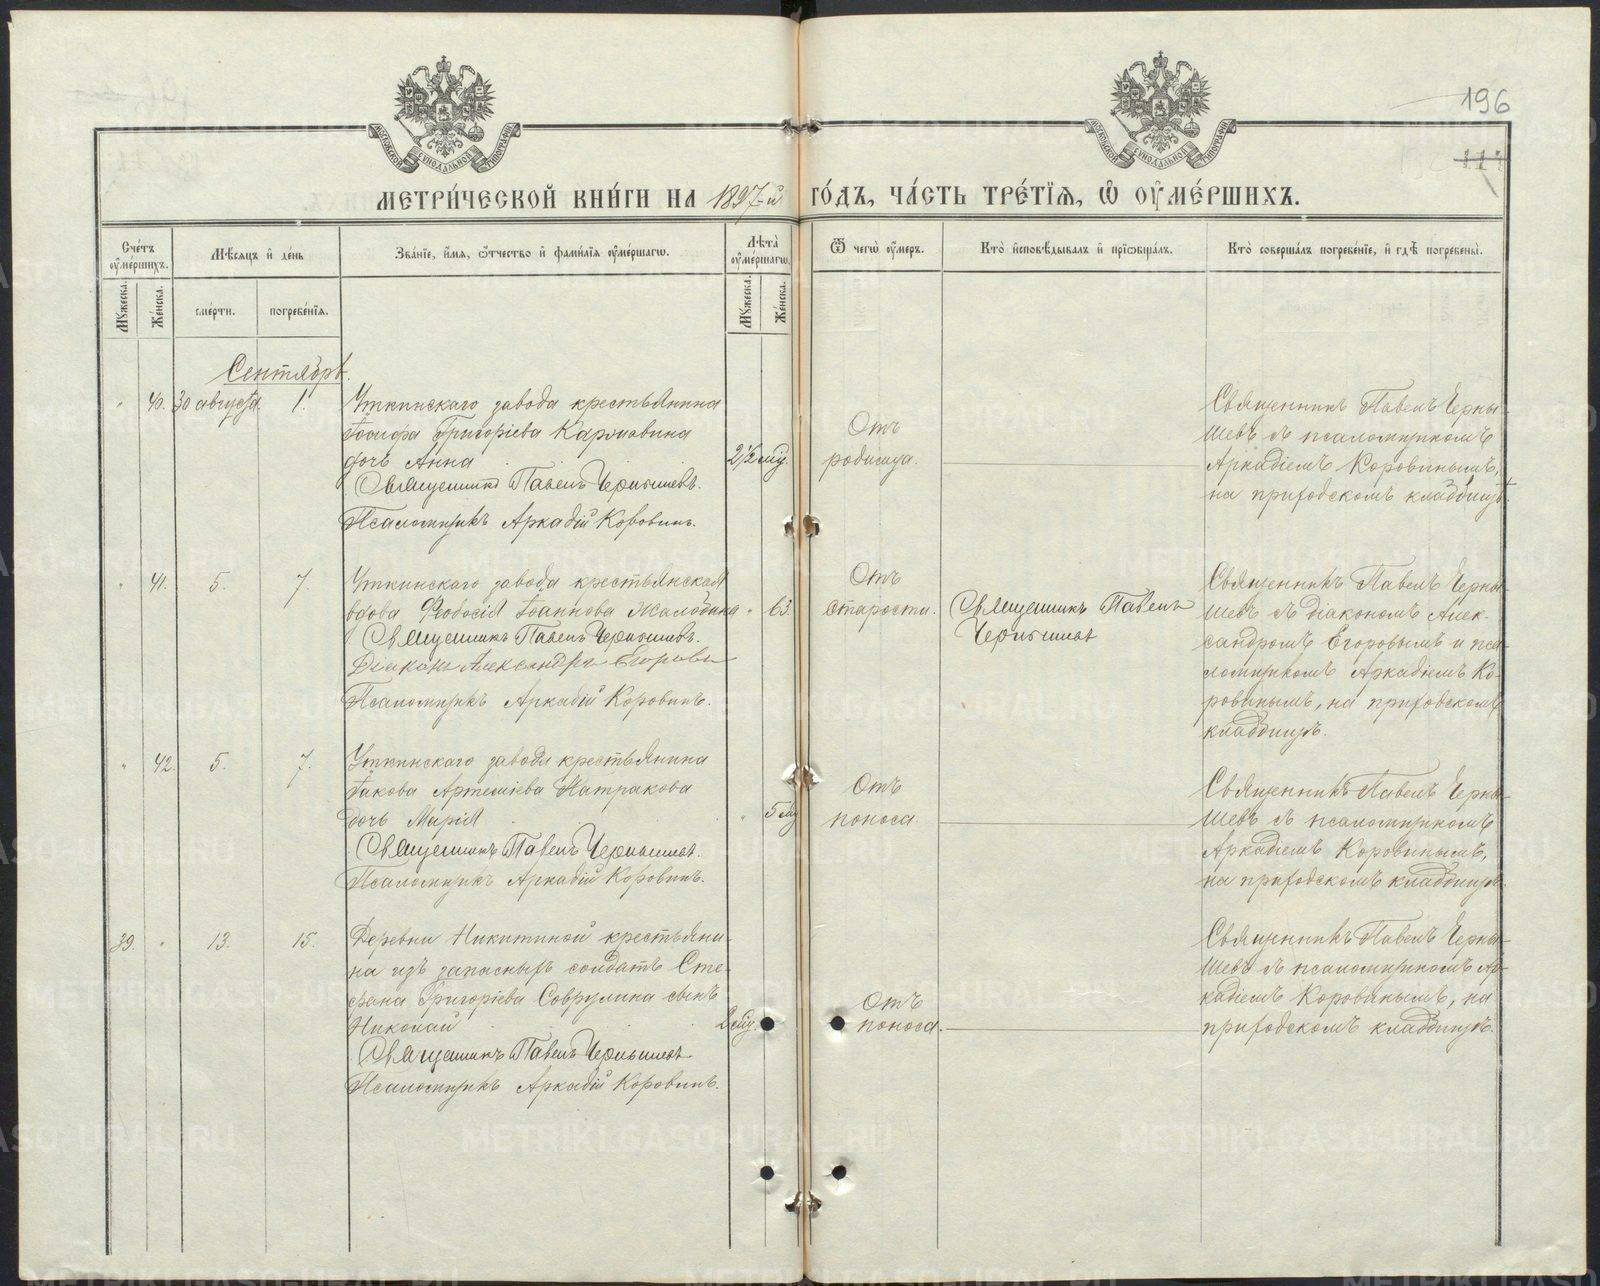 196
МЕТРИЧЕСКОЙ КНИГИ НА 1897-й ГОДЪ, ЧАСТЬ ТРЕТІЯ, Ѿ ОУМЕРШИХЪ.
Счетъ оумершихъ.
Мѣсяцъ и день
Званіе, имя, ѿтчество и фамилія оумершагѡ.
Лѣта оумершагѡ.
Ѿ чегѡ оумеръ.
Кто исповѣдывалъ и пріѡбщалъ.
Кто совершалъ погребеніе, и гдѣ погребены.
Мужеска.
Женска.
смерти.
погребенія.
Мужеска.
Женска.
Сентябрь.
40. 30 августа. 1.
Уткинскаго завода крестьянина
Григоріева
дочь Анна
2½ мѣс.
Священникъ Павелъ Чернышевъ.
Псаломщикъ Аркадій Коровинъ.
Отъ
родимца.
Священникъ Павелъ Черны-
шевъ съ псаломщикомъ
Аркадіемъ Коровинымъ,
на приходскомъ кладбищѣ
41. 5. 7
Уткинскаго завода крестьянская
вдова Ѳеодосія Іоаннова
63.
Священникъ Павелъ Чернышевъ.
Діаконъ Александръ Егоровъ
Псаломщикъ Аркадій Коровинъ.
Отъ
старости.
Священникъ Павелъ
Чернышевъ
Священникъ Павелъ Черны-
шевъ съ діакономъ Алек-
сандромъ Егоровымъ и пса-
ломщикомъ Аркадіемъ Ко-
ровинымъ, на приходскомъ
кладбищѣ.
42. 5. 7.
Уткинскаго завода крестьянина
Іакова Артеміева Натракова
дочь Марія
5 мѣс
Священникъ Павелъ Чернышевъ.
Псаломщикъ Аркадій Коровинъ.
Отъ
поноса.
Священникъ Павелъ Черны-
шевъ съ псаломщикомъ
Аркадіемъ Коровинымъ,
на приходскомъ кладбищѣ.
39. 13. 15.
Деревни Никитиной крестьяни-
на изъ запасныхъ солдатъ Сте-
фана Григоріева Соврулина сынъ
Николай
2 мѣс.
Священникъ Павелъ Чернышевъ
Псаломщикъ Аркадій Коровинъ.
Отъ
поноса.
Священникъ Павелъ Черны-
шевъ съ псаломщикомъ Ар-
кадіемъ Коровинымъ, на
приходскомъ кладбищѣ.
METRIKI.GASO-URAL.RU